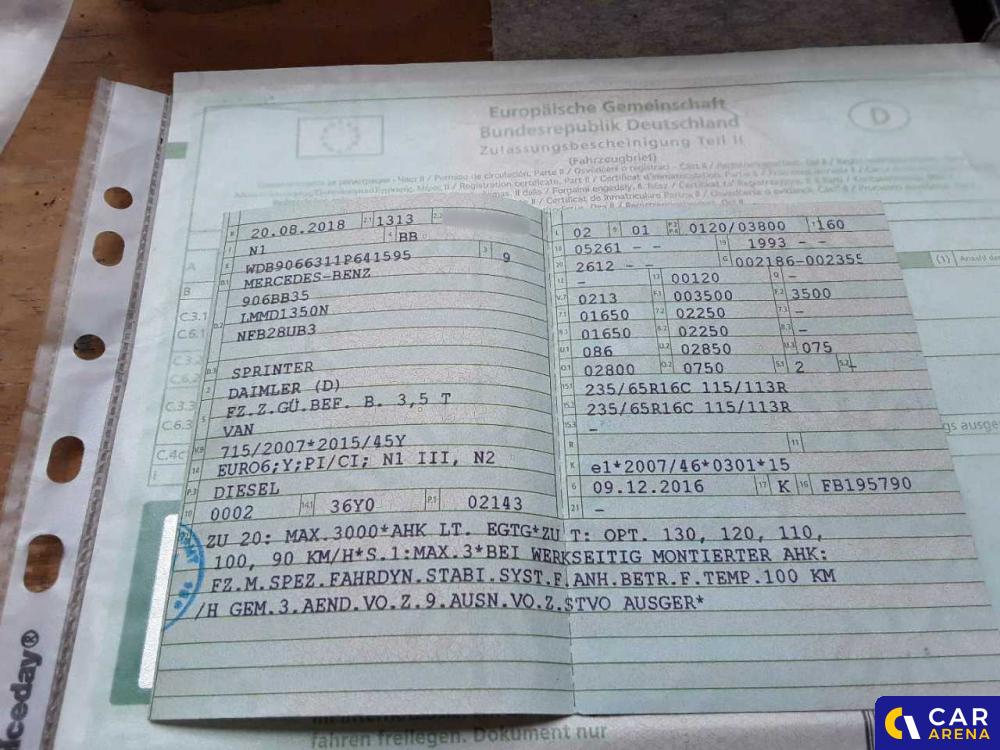 Europäische Gemeinschaft
Bundesrepublik Deutschland
Zulassungsbescheinigung Teil II
(Fahrzeugbrief)
D
B 20.08.2018 2.1 1313 2.2
J N1 4 BB
E WDB9066311P641595 3 9
D.1 MERCEDES-BENZ
906BB35
D.2 LMMD1350N
NFB28UB3
D.3 SPRINTER
2 DAIMLER (D)
5 FZ.Z.GÜ.BEF. B. 3,5 T
VAN
V.9 715/2007*2015/45Y
14 EURO6;Y;PI/CI; N1 III, N2
P.3 DIESEL
10 0002 14.1 36Y0 P.1 02143
L 02 9 01 P.2 P.4 0120/03800 T 160
18 05261 - - 19 1993 - -
20 2612 - - G 002186-002355
12 - 13 00120 Q -
V.7 0213 F.1 003500 F.2 3500
7.1 01650 7.2 02250 7.3 -
8.1 01650 8.2 02250 8.3 -
U.1 086 U.2 02850 U.3 075
O.1 02800 O.2 0750 S.1 2 S.2
15.1 235/65R16C 115/113R
15.2 235/65R16C 115/113R
15.3 -
R 11
K e1*2007/46*0301*15
6 09.12.2016 17 K 16 FB195790
21 -
ZU 20: MAX.3000*AHK LT. EGTG*ZU T: OPT. 130, 120, 110,
100, 90 KM/H*S.1:MAX.3*BEI WERKSEITIG MONTIERTER AHK:
FZ.M.SPEZ.FAHRDYN.STABI.SYST.F.ANH.BETR.F.TEMP.100 KM
/H GEM.3.AEND.VO.Z.9.AUSN.VO.Z.STVO AUSGER*
A
B
C.3.1
C.6.1
C.3.2
C.6.2
C.3.3
C.6.3
C.4c
(1) Anzahl der
fahren freilegen. Dokument nur
iceday®
CAR
ARENA